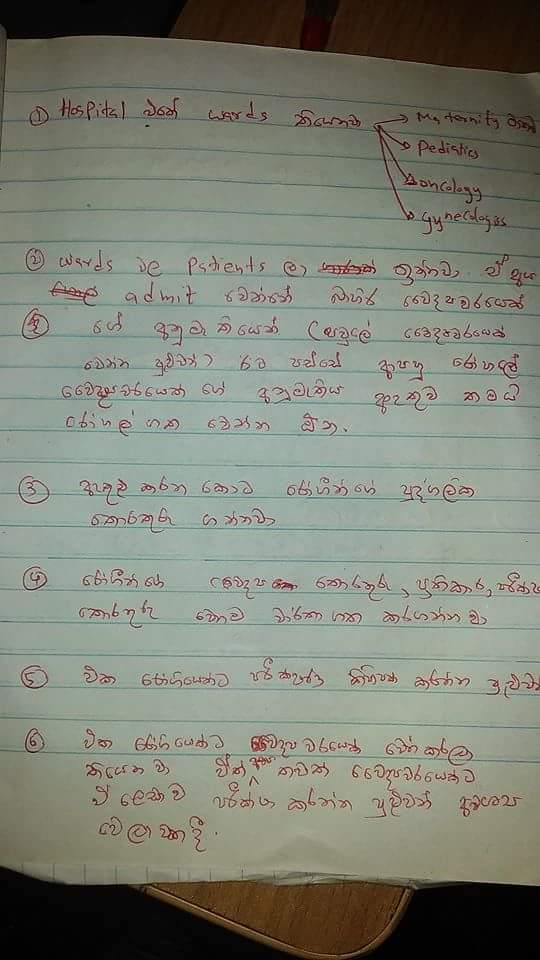 ① Hospital එකේ wards තියෙනවා → Maternity
→ Pediatics
→ oncology
→ Gynecologis
② wards වල Patients ලා ඉන්නවා. ඒ අය
admit වෙන්නේ බාහිර වෛද්‍යවරයෙක්
ගේ අනුමැතියෙන් (පවුලේ වෛද්‍යවරයෙක්
වෙන්න පුළුවන්) ඊට පස්සේ ආපහු රෝහලේ
වෛද්‍යවරයෙක් ගේ අනුමැතිය ඇතුව තමයි
රෝහල් ගත වෙන්න ඕන.
③ ඇතුළු කරන කොට රෝගීන්ගේ පුද්ගලික
තොරතුරු ගන්නවා
④ රෝගීන්ගේ වෛද්‍ය තොරතුරු, ප්‍රතිකාර,
තොරතුරු වාර්තා ගත කරගන්න වා
⑤ එක රෝගියෙක්ට පරීක්ෂණ කිහිපයක් කරන්න පුළුවන්
⑥ එක රෝගියෙක්ට වෛද්‍ය වරයෙක් වෙන් කරලා
තියෙන වා ඒත් තවත් වෛද්‍යවරයෙක්ට
ඒ ලෙඩාව පරීක්ෂා කරන්න පුළුවන් අවශ්‍ය
වෙලාවකදී.